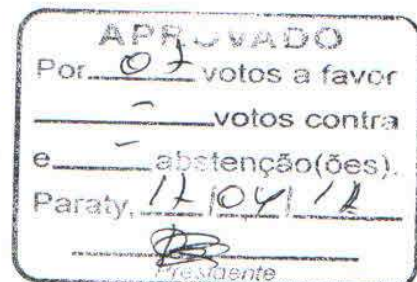 APROVADO
Por 07 votos a favor
- votos contra
e - abstenção(ões).
Paraty, 17/04/12
Presidente